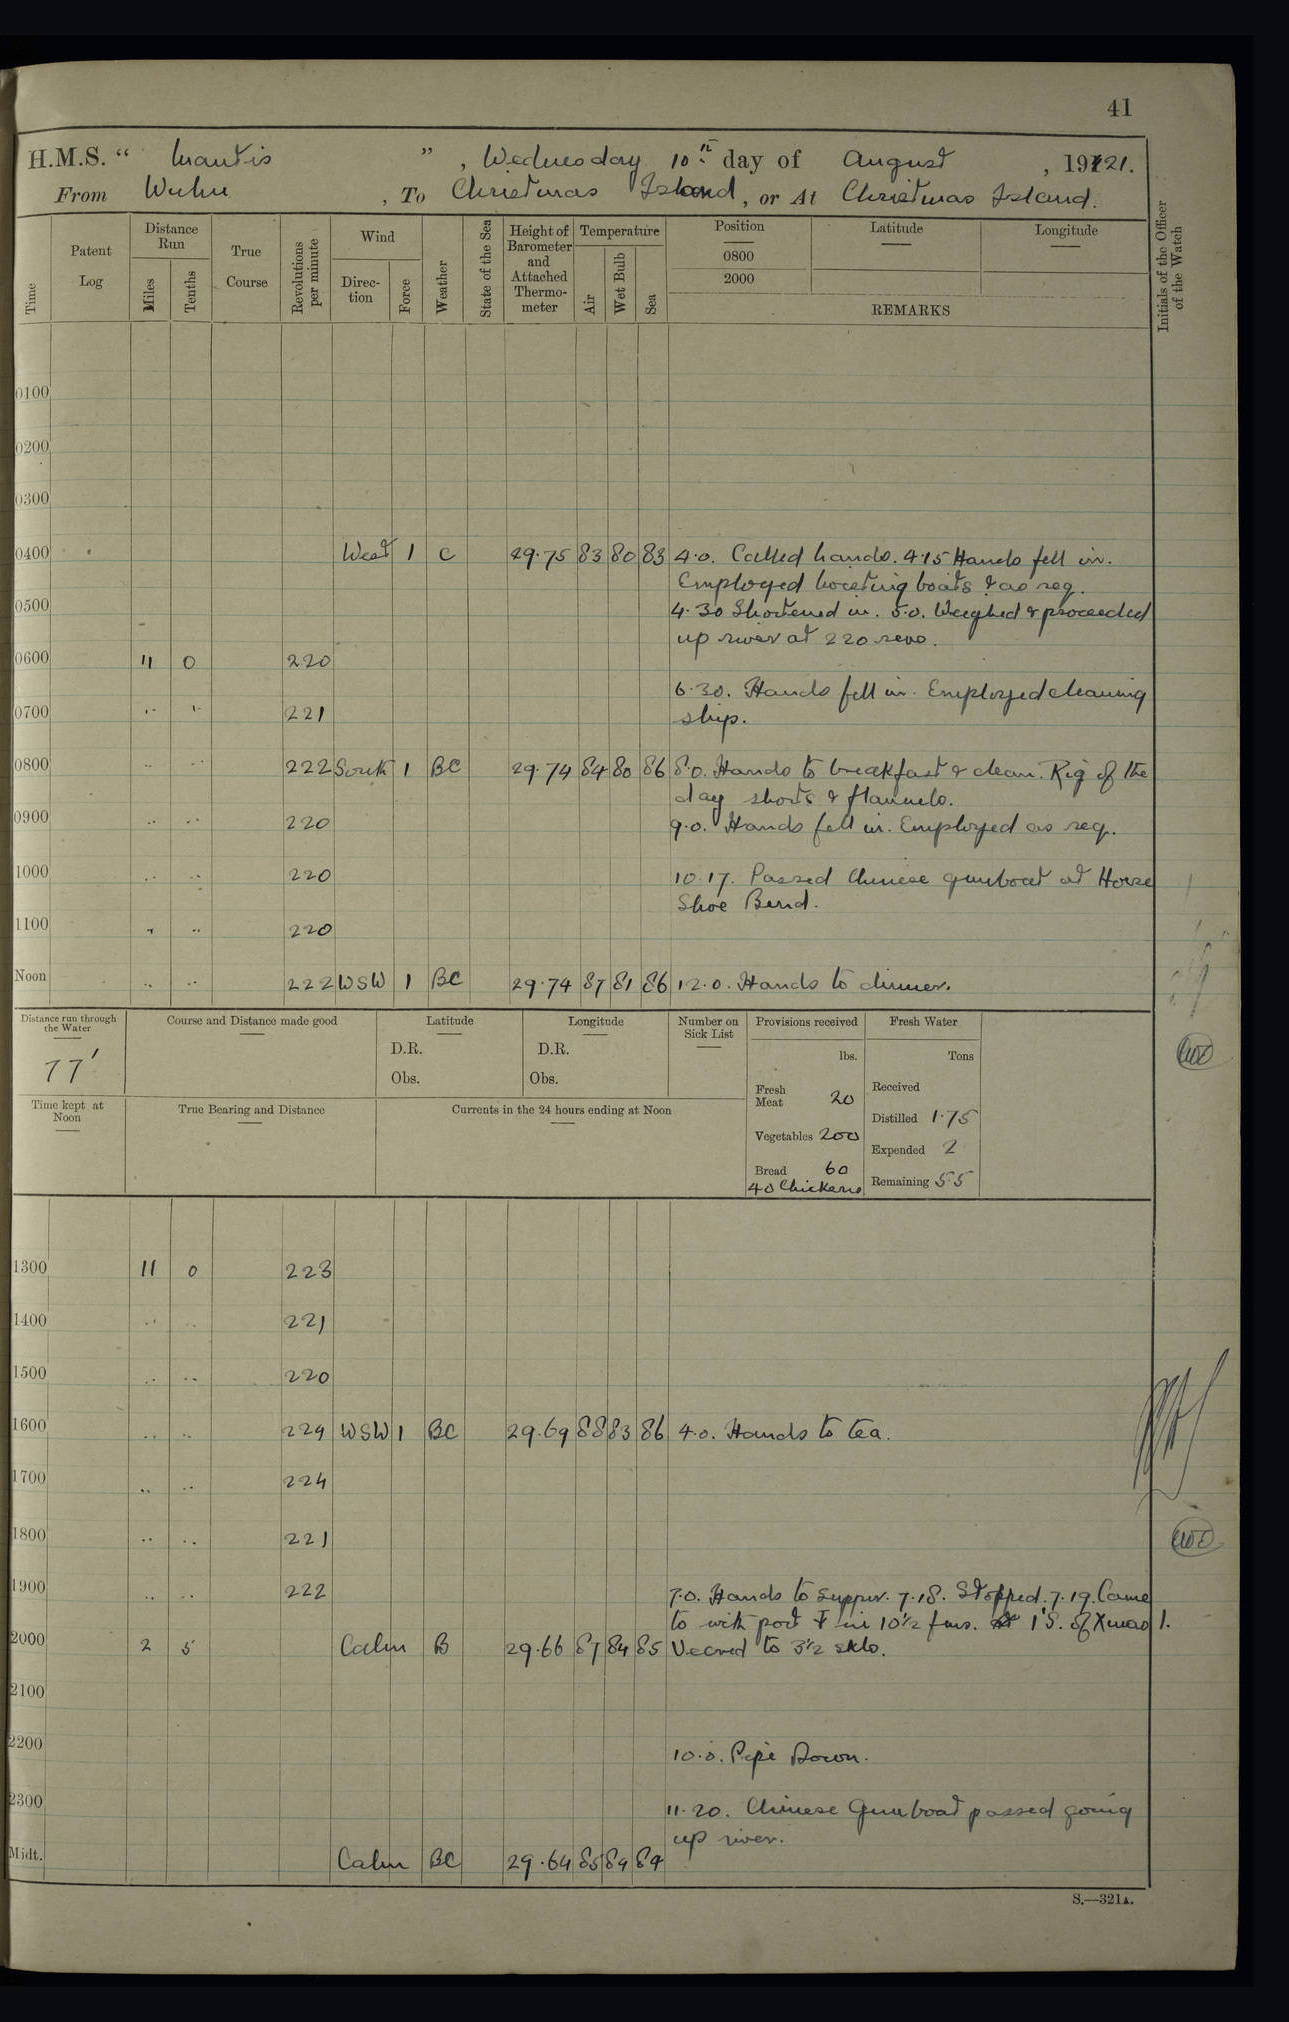 41
H.M.S. “ Mantis ”, Wednesday 10th day of August, 1921.
From Wuhu, To Christmas Island, or At Christmas Island.
Time
Patent Log
Distance Run
Miles
Tenths
True Course
Revolutions per minute
Wind
Direction
Force
Weather
State of the Sea
Height of Barometer and Attached Thermometer
Temperature
Air
Wet Bulb
Sea
Position
0800
2000
Latitude
Longitude
REMARKS
Initials of the Officer of the Watch
0100
0200
0300
0400 West 1 C 29.75 83 80 83 4.0. Called hands. 4.15 Hands fell in.
Employed hoisting boats & as req.
0500 4.30 Shortened in. 5.0. Weighed & proceeded
up river at 220 revs.
0600 11 0 220
6.30. Hands fell in. Employed cleaning
0700 .. .. 221 ship.
0800 .. .. 222 South 1 BC 29.74 84 80 86 8.0. Hands to breakfast & clean. Rig of the
day shorts & flannels.
0900 .. .. 220 9.0. Hands fell in. Employed as req.
1000 .. .. 220 10.17. Passed Chinese gunboat at Horse
Shoe Bend.
1100 .. .. 220
Noon .. .. 222 WSW 1 BC 29.74 87 81 86 12.0. Hands to dinner.
Distance run through the Water
77'
Course and Distance made good
Latitude
D.R.
Obs.
Longitude
D.R.
Obs.
Number on Sick List
Provisions received
lbs.
Fresh Meat 20
Vegetables 200
Bread 60
40 Chickens
Fresh Water
Tons
Received
Distilled 1.75
Expended 2
Remaining 55
Time kept at Noon
True Bearing and Distance
Currents in the 24 hours ending at Noon
1300 11 0 223
1400 .. .. 221
1500 .. .. 220
1600 .. .. 224 WSW 1 BC 29.69 88 83 86 4.0. Hands to tea.
1700 .. .. 224
1800 .. .. 221
1900 .. .. 222 7.0. Hands to supper. 7.18. Stopped. 7.19. Came
to with port in 10½ fms. 1'S. of Xmas I.
2000 2 5 Calm B 29.66 87 84 85 Veered to 3½ skls.
2100
2200
10.0. Pipe Down.
2300 11.20. Chinese Gunboat passed going
up river.
Midt. Calm BC 29.64 85 84 84
S.—321A.